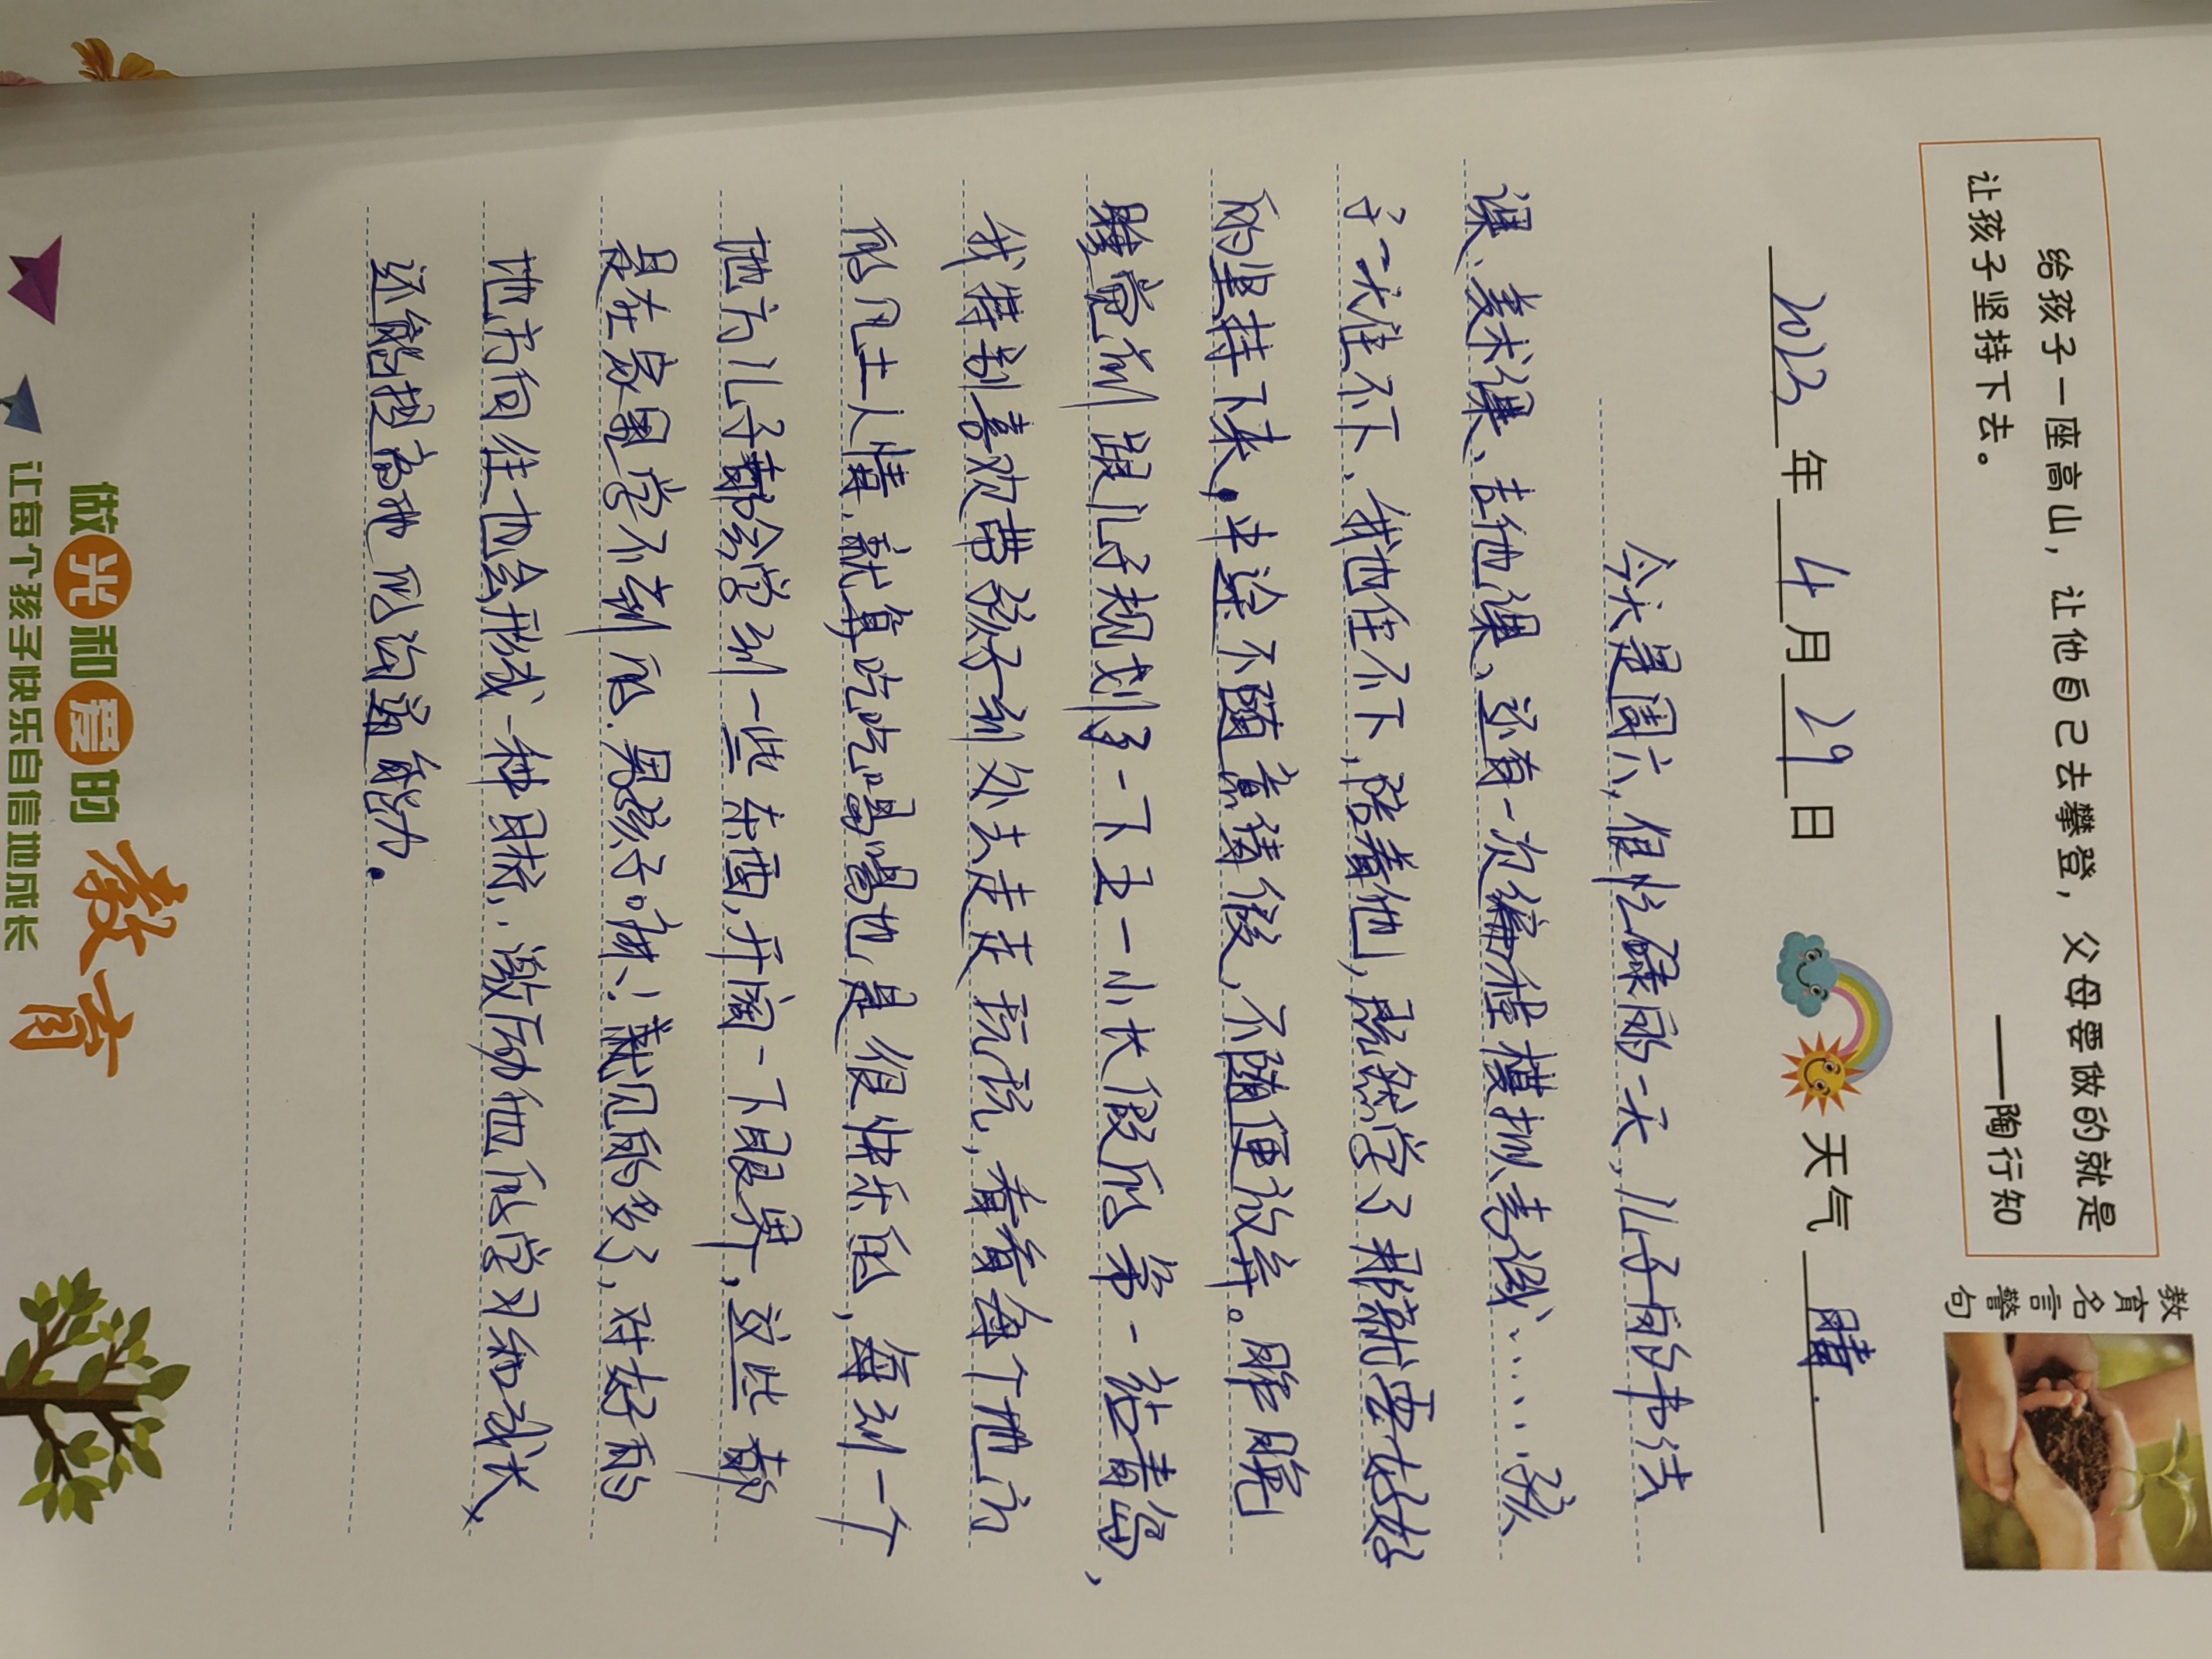 教育名言警句
给孩子一座高山，让他自己去攀登，父母要做的就是
让孩子坚持下去。
——陶行知
2023年4月29日 天气 晴.
今天是周六,很忙碌的一天,儿子的书法
课、美术课、吉他课、还有一次编程模拟考试、……孩
子一天住不下、我也住不下,陪着他,既然学了那就要好好
的坚持下来,中途不随意请假,不随便放弃。昨晚
睡觉前跟儿子规划了一下五一小长假的第一站青岛、
我特别喜欢带孩子到处去走走玩玩,看看每个地方
的风土人情,就算吃吃喝喝也是很快乐的,每到一个
地方儿子都会学到一些东西,开阔一下眼界,这些都
是在家里学不到的.男孩子嘛!就见的多了,对好的
地方向往也会形成一种目标,激励他的学习和成长
还能提高他的沟通能力.
做光和爱的教育
让每个孩子快乐自信地成长